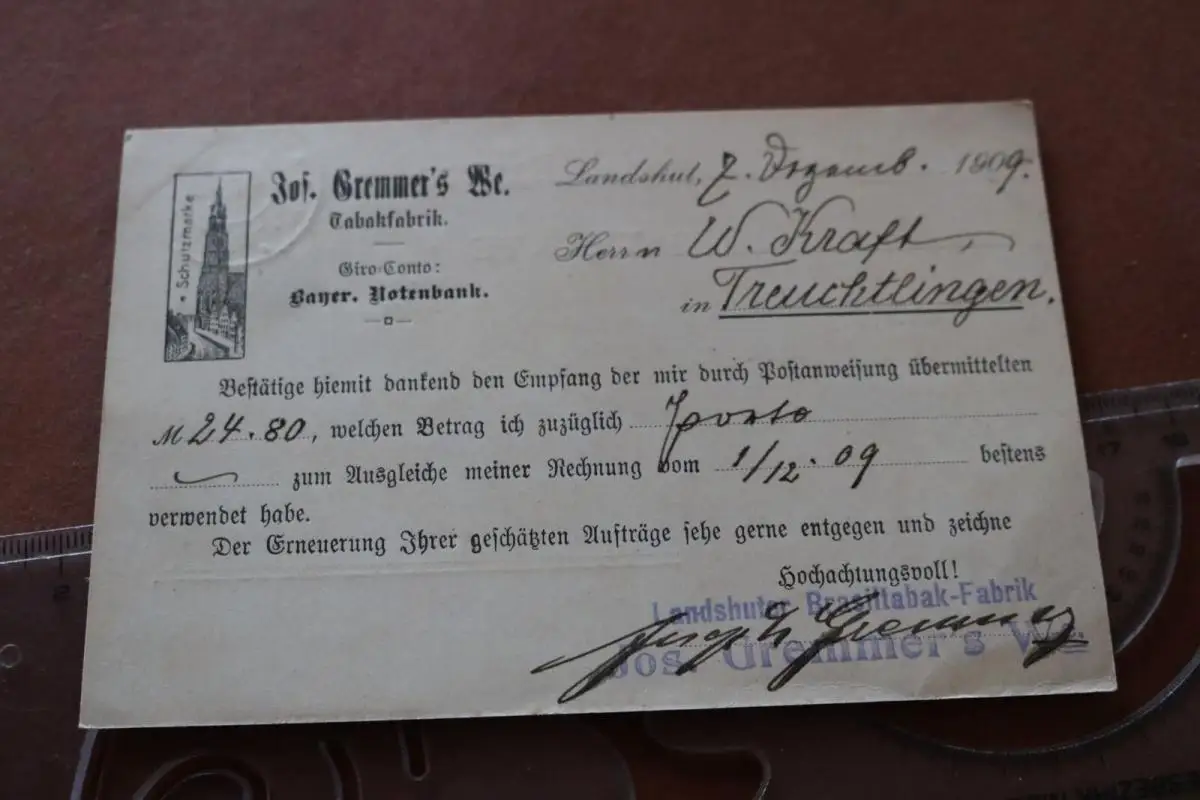 * Schutzmarke
Jos. Gremmer's We.
Tabakfabrik.
Giro-Conto:
Bayer. Notenbank.
Landshut, 7. Dezemb. 1909.
Herrn W. Kraft
in Treuchtlingen.
Bestätige hiemit dankend den Empfang der mir durch Postanweisung übermittelten
M 24.80, welchen Betrag ich zuzüglich Porto
zum Ausgleiche meiner Rechnung vom 1/12. 09 bestens
verwendet habe.
Der Erneuerung Ihrer geschätzten Aufträge sehe gerne entgegen und zeichne
Hochachtungsvoll!
Landshuter Brasiltabak-Fabrik
Jos. Gremmer's We.